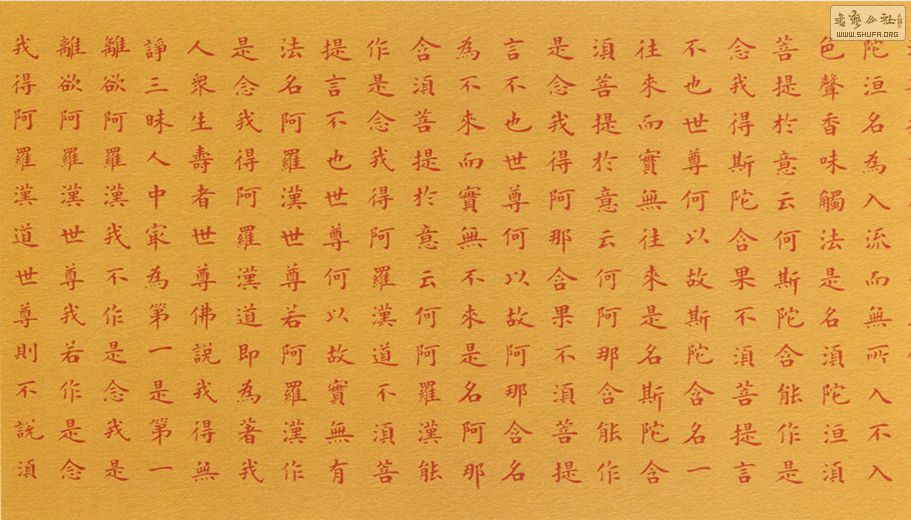 陀洹名為入流而無所入不入
色聲香味觸法是名須陀洹須
菩提於意云何斯陀含能作是
念我得斯陀含果不須菩提言
不也世尊何以故斯陀含名一
往來而實無往來是名斯陀含
須菩提於意云何阿那含能作
是念我得阿那含果不須菩提
言不也世尊何以故阿那含名
為不來而實無不來是名阿那
含須菩提於意云何阿羅漢能
作是念我得阿羅漢道不須菩
提言不也世尊何以故實無有
法名阿羅漢世尊若阿羅漢作
是念我得阿羅漢道即為著我
人衆生壽者世尊佛說我得無
諍三昧人中冣為第一是第一
離欲阿羅漢我不作是念我是
離欲阿羅漢世尊我若作是念
我得阿羅漢道世尊則不說須
書藝公社
WWW.SHUFA.ORG